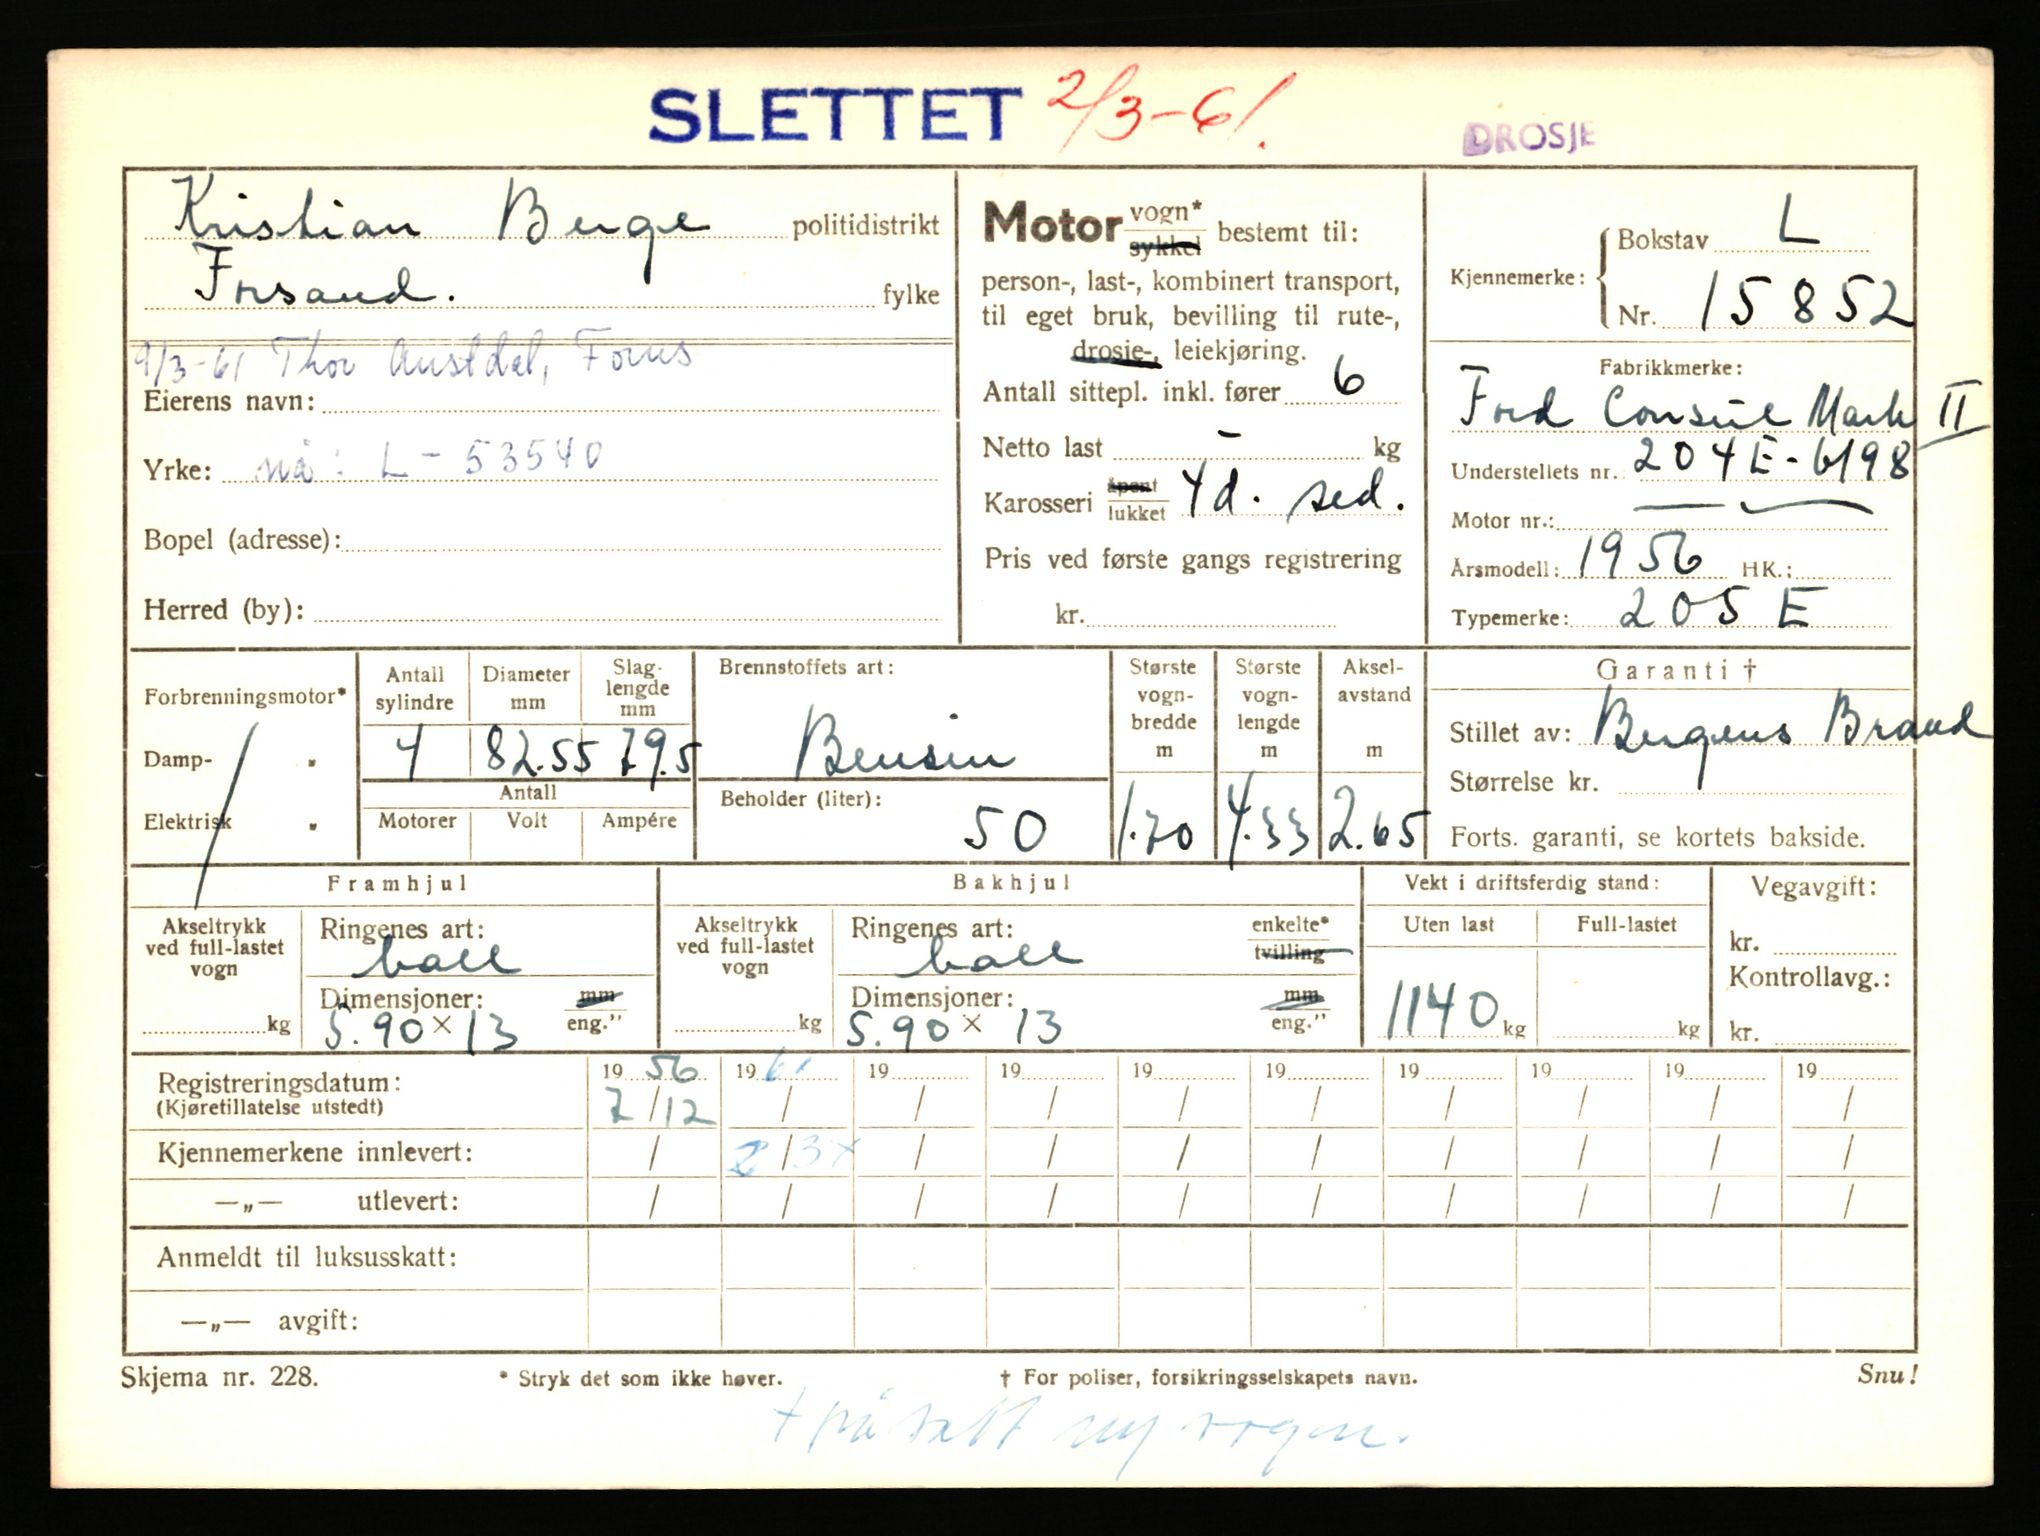 SLETTET 2/3-61.
DROSJE
Kristian Berge politidistrikt
Forsand. fylke
9/3-61 Thor Austdal, Forus
Eierens navn:
Yrke: nå: L-53540
Bopel (adresse):
Herred (by):
Motor vogn* sykkel bestemt til:
person-, last-, kombinert transport,
til eget bruk, bevilling til rute-,
drosje-, leiekjøring.
Antall sittepl. inkl. fører 6
Netto last - kg
Karosseri åpent lukket 4d. sed.
Pris ved første gangs registrering
kr.
Kjennemerke: Bokstav L
Nr. 15852
Fabrikkmerke:
Ford Consul Mark II
Understellets nr. 204E-6198
Motor nr.:
Årsmodell: 1956 HK.:
Typemerke: 205 E
Forbrenningsmotor*
Damp- "
Elektrisk "
Antall sylindre 4
Diameter mm 82.55
Slaglengde mm 79.5
Antall
Motorer Volt Ampére
Brennstoffets art:
Bensin
Beholder (liter):
50
Største vogn-bredde m 1.70
Største vogn-lengde m 4.33
Aksel-avstand m 2.65
Garanti †
Stillet av: Bergens Brand
Størrelse kr.
Forts. garanti, se kortets bakside.
Framhjul
Akseltrykk ved full-lastet vogn
kg
Ringenes art:
ball
Dimensjoner: mm
5.90 x 13 eng."
Bakhjul
Akseltrykk ved full-lastet vogn
kg
Ringenes art: enkelte*
ball tvilling
Dimensjoner: mm
5.90 x 13 eng."
Vekt i driftsferdig stand:
Uten last Full-lastet
1140 kg kg
Vegavgift:
kr.
Kontrollavg.:
kr.
Registreringsdatum: 19 56 19 61 19 19 19 19 19 19 19 19
(Kjøretillatelse utstedt) 7/12 / / / / / / / / /
Kjennemerkene innlevert: / 2/3x / / / / / / / /
—„— utlevert: / / / / / / / / / /
Anmeldt til luksusskatt:
—„— avgift:
Skjema nr. 228. * Stryk det som ikke høver. † For poliser, forsikringsselskapets navn. Snu!
+ påsatt ny vogn.